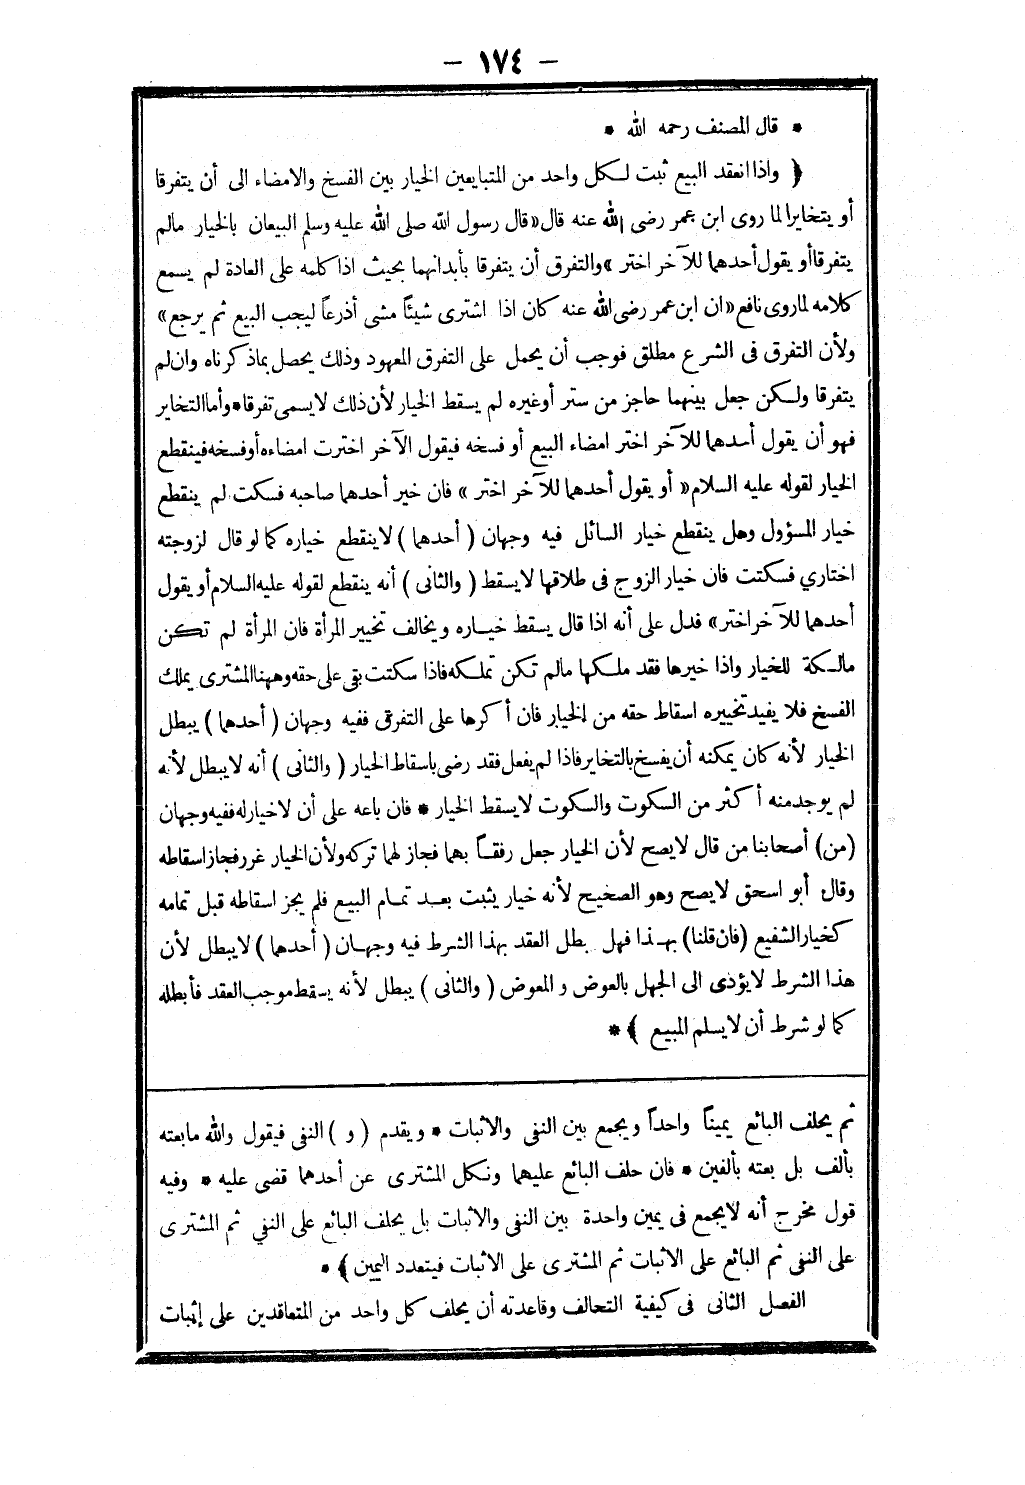 - ١٧٤ -
* قال المصنف رحمه الله *
﴿ واذا انعقد البيع ثبت لكل واحد من المتبايعين الخيار بين الفسخ والامضاء الى أن يتفرقا
أو يتخايرا لما روى ابن عمر رضى الله عنه قال «قال رسول الله صلى الله عليه وسلم البيعان بالخيار مالم
يتفرقا أو يقول أحدهما للآخر اختر » والتفرق أن يتفرقا بأبدانهما بحيث اذا كلمه على العادة لم يسمع
كلامه لما روى نافع «ان ابن عمر رضى الله عنه كان اذا اشترى شيئاً مشى أذرعاً ليجب البيع ثم يرجع»
ولأن التفرق فى الشرع مطلق فوجب أن يحمل على التفرق المعهود وذلك يحصل بما ذكرناه وان لم
يتفرقا ولكن جعل بينهما حاجز من ستر أوغيره لم يسقط الخيار لأن ذلك لا يسمى تفرقا * وأما التخاير
فهو أن يقول أحدهما للآخر اختر امضاء البيع أو فسخه فيقول الآخر اخترت امضاءه أو فسخه فينقطع
الخيار لقوله عليه السلام « أو يقول أحدهما للآخر اختر » فان خير أحدهما صاحبه فسكت لم ينقطع
خيار المسؤول وهل ينقطع خيار السائل فيه وجهان ( أحدهما ) لاينقطع خياره كما لو قال لزوجته
اختاري فسكتت فان خيار الزوج فى طلاقها لا يسقط ( والثانى ) أنه ينقطع لقوله عليه السلام أو يقول
أحدهما للآخر اختر » فدل على أنه اذا قال يسقط خياره ويخالف تخيير المرأة فان المرأة لم تكن
مالكة للخيار واذا خيرها فقد ملكها مالم تكن تملكه فاذا سكتت بقى على حقه وههنا المشترى يملك
الفسخ فلا يفيد تخييره اسقاط حقه من الخيار فان أكرها على التفرق ففيه وجهان ( أحدها ) يبطل
الخيار لأنه كان يمكنه أن يفسخ بالتخاير فاذا لم يفعل فقد رضى باسقاط الخيار ( والثانى ) أنه لا يبطل لأنه
لم يوجد منه أكثر من السكوت والسكوت لايسقط الخيار * فان باعه على أن لاخيار له ففيه وجهان
(من) أصحابنا من قال لايصح لأن الخيار جعل رفقاً بهما فجاز لهما تركه ولأن الخيار غرر فجاز اسقاطه
وقال أبو اسحق لايصح وهو الصحيح لأنه خيار يثبت بعد تمام البيع فلم يجز اسقاطه قبل تمامه
كخيار الشفيع (فان قلنا) بهذا فهل بطل العقد بهذا الشرط فيه وجهان ( أحدهما ) لا يبطل لأن
هذا الشرط لايؤدى الى الجهل بالعوض والمعوض ( والثانى ) يبطل لأنه يسقط موجب العقد فأبطله
كما لو شرط أن لا يسلم المبيع ﴾ *
ثم يحلف البائع يميناً واحداً ويجمع بين النفى والاثبات * ويقدم ( و ) النفى فيقول والله مابعته
بألف بل بعته بألفين * فان حلف البائع عليهما ونكل المشترى عن أحدهما قضى عليه * وفيه
قول مخرج أنه لايجمع فى يمين واحدة بين النفى والاثبات بل يحلف البائع على النفي ثم المشترى
على النفى ثم البائع على الاثبات ثم المشترى على الاثبات فيتعدد اليمين ﴾ *
الفصل الثانى فى كيفية التحالف وقاعدته أن يحلف كل واحد من المتعاقدين على إثبات